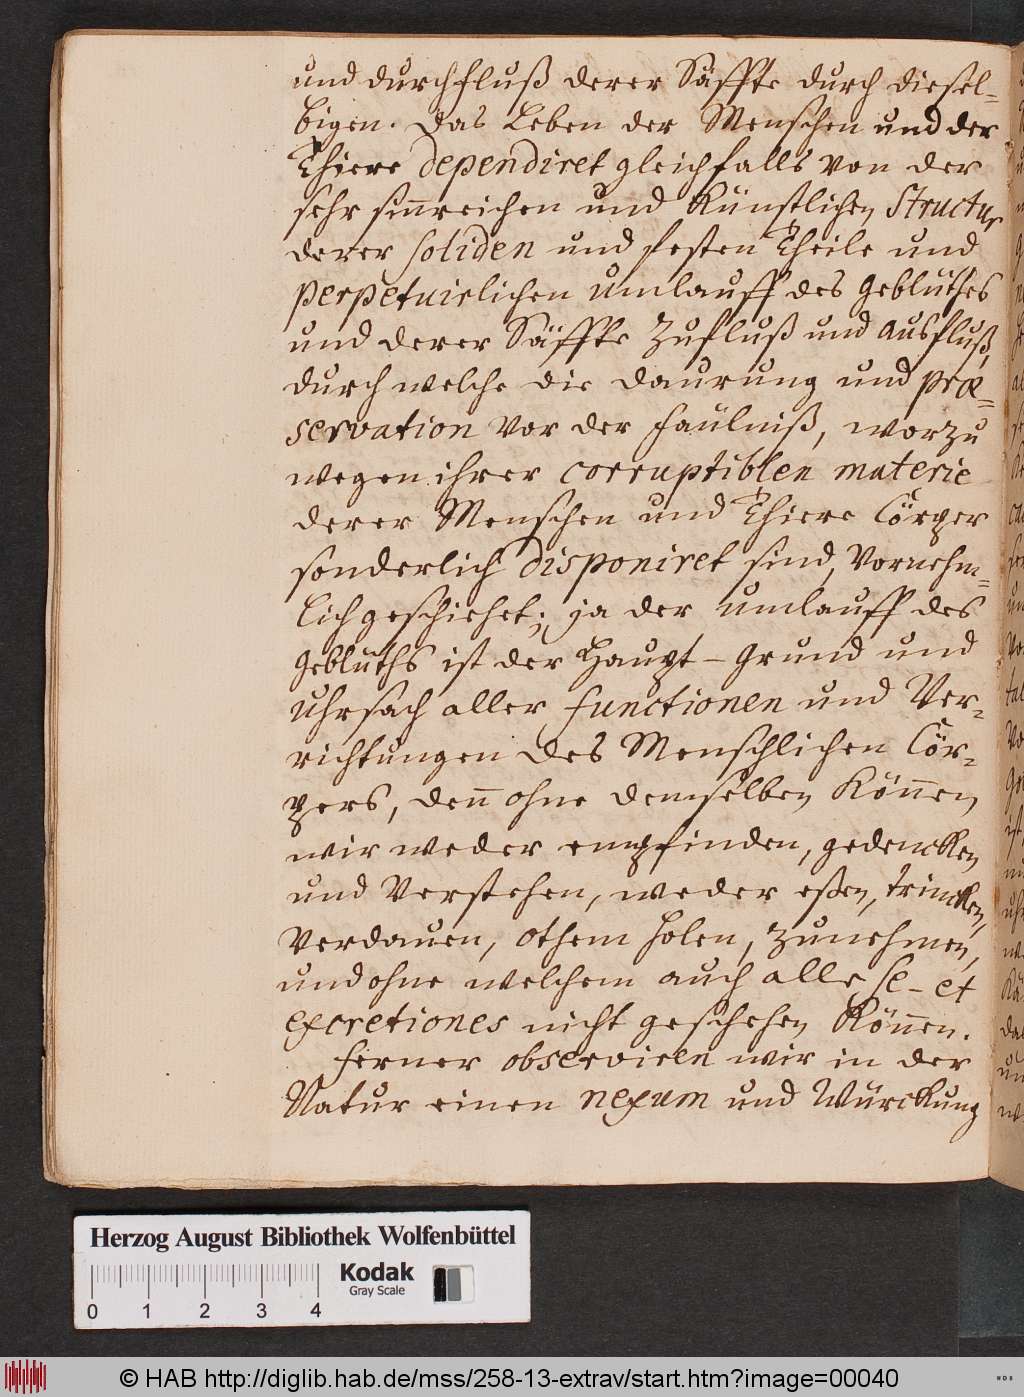 und durchfluß derer Säffte durch diesel=
bigen. Das Leben der Menschen und der
Thiere dependiret gleichfalls von der
sehr sinnreichen und Künstlichen Structur
derer soliden und festen Theile und
perpetuirlichen umlauff des Geblüthes
und derer Säffte Zufluß und ausfluß,
durch welche die Daurung und præ=
servation vor der Fäulniß, worzu
wegen ihrer corruptiblen materie
derer Menschen und Thiere Cörper
sonderlich disponiret sind, Vornehm=
lich geschiehet; ja der umlauff des
Geblüths ist der Haupt-Grund und
Uhrsach aller Functionen und Ver=
richtungen des Menschlichen Cör=
pers, denn ohne demselben Können
wir weder empfinden, gedencken
und Verstehen, weder eßen, trincken,
Verdauen, othem holen, zunehmen,
und ohne welchem auch alle se- et
excretiones nicht geschehen Können.
Ferner observiren wir in der
Natur einen nexum und Würckung
Herzog August Bibliothek Wolfenbüttel
Kodak
Gray Scale
0 1 2 3 4
© HAB http://diglib.hab.de/mss/258-13-extrav/start.htm?image=00040